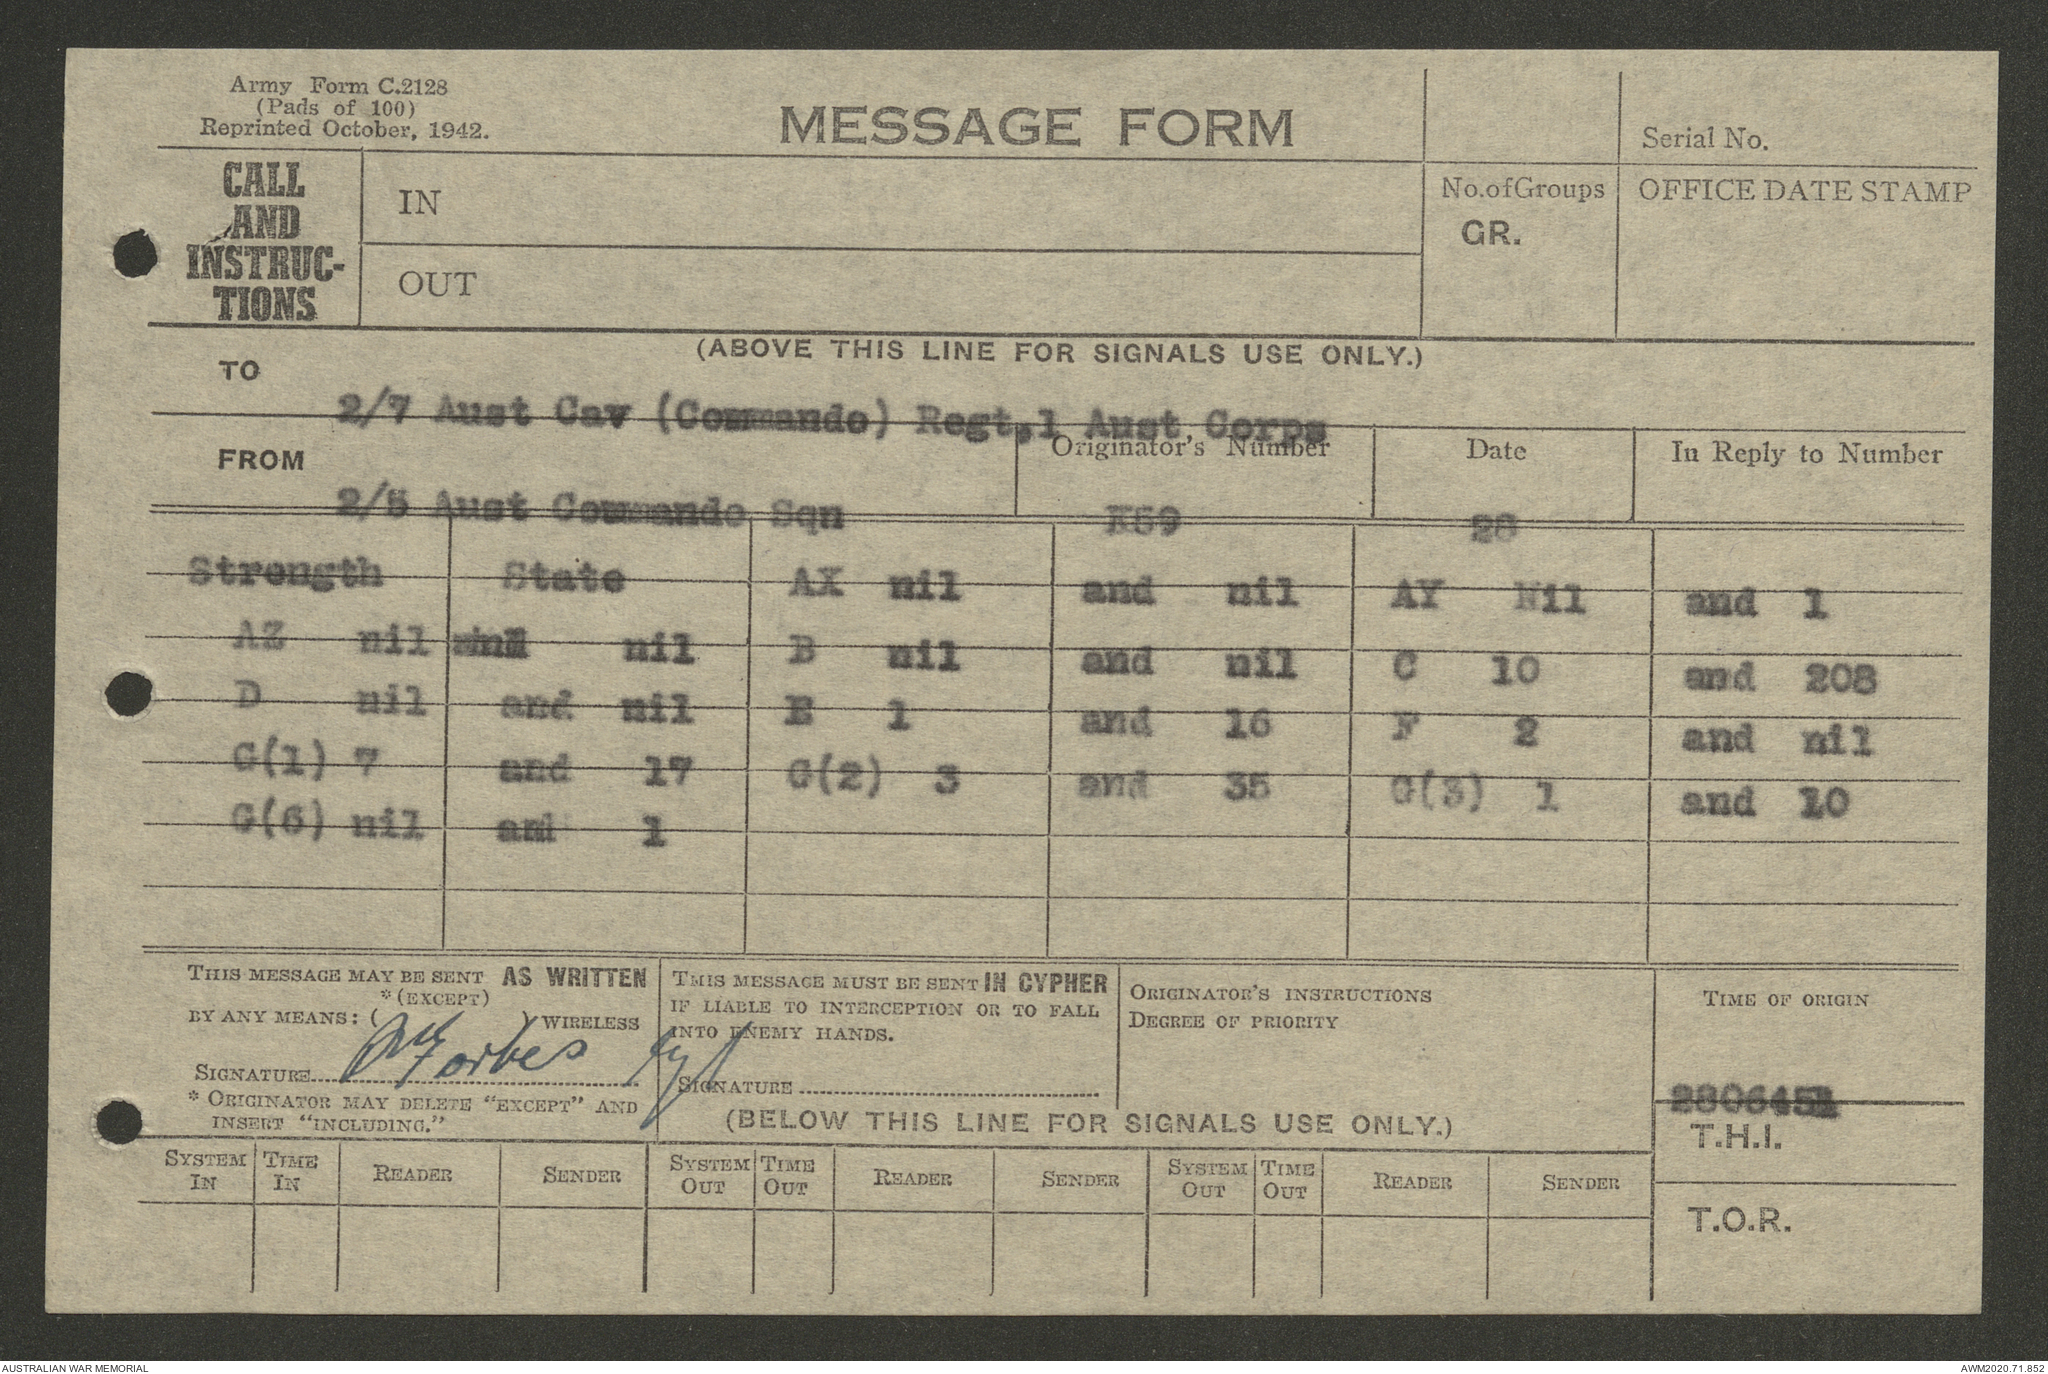 Army Form C.2128
(Pads of 100)
Reprinted October, 1942.
MESSAGE FORM
Serial No.
CALL AND INSTRUC-TIONS
IN
OUT
No.ofGroups
GR.
OFFICE DATE STAMP
(ABOVE THIS LINE FOR SIGNALS USE ONLY.)
TO
2/7 Aust Cav (Commando) Regt,1 Aust Corps
FROM
2/5 Aust Commando Sqn
Originator's Number
K59
Date
28
In Reply to Number
Strength State AX nil and nil AY Nil and 1
AZ nil and nil B nil and nil C 10 and 208
D nil and nil E 1 and 16 F 2 and nil
G(1) 7 and 17 G(2) 3 and 35 G(3) 1 and 10
G(6) nil and 1
THIS MESSAGE MAY BE SENT AS WRITTEN
*(EXCEPT)
BY ANY MEANS: ( ) WIRELESS
SIGNATURE Forbes
* ORIGINATOR MAY DELETE "EXCEPT" AND
INSERT "INCLUDING."
THIS MESSAGE MUST BE SENT IN CYPHER
IF LIABLE TO INTERCEPTION OR TO FALL
INTO ENEMY HANDS.
SIGNATURE
ORIGINATOR'S INSTRUCTIONS
DEGREE OF PRIORITY
TIME OF ORIGIN
(BELOW THIS LINE FOR SIGNALS USE ONLY.)
T.H.I.
T.O.R.
SYSTEM IN TIME IN READER SENDER SYSTEM OUT TIME OUT READER SENDER SYSTEM OUT TIME OUT READER SENDER
AUSTRALIAN WAR MEMORIAL
AWM2020.71.852